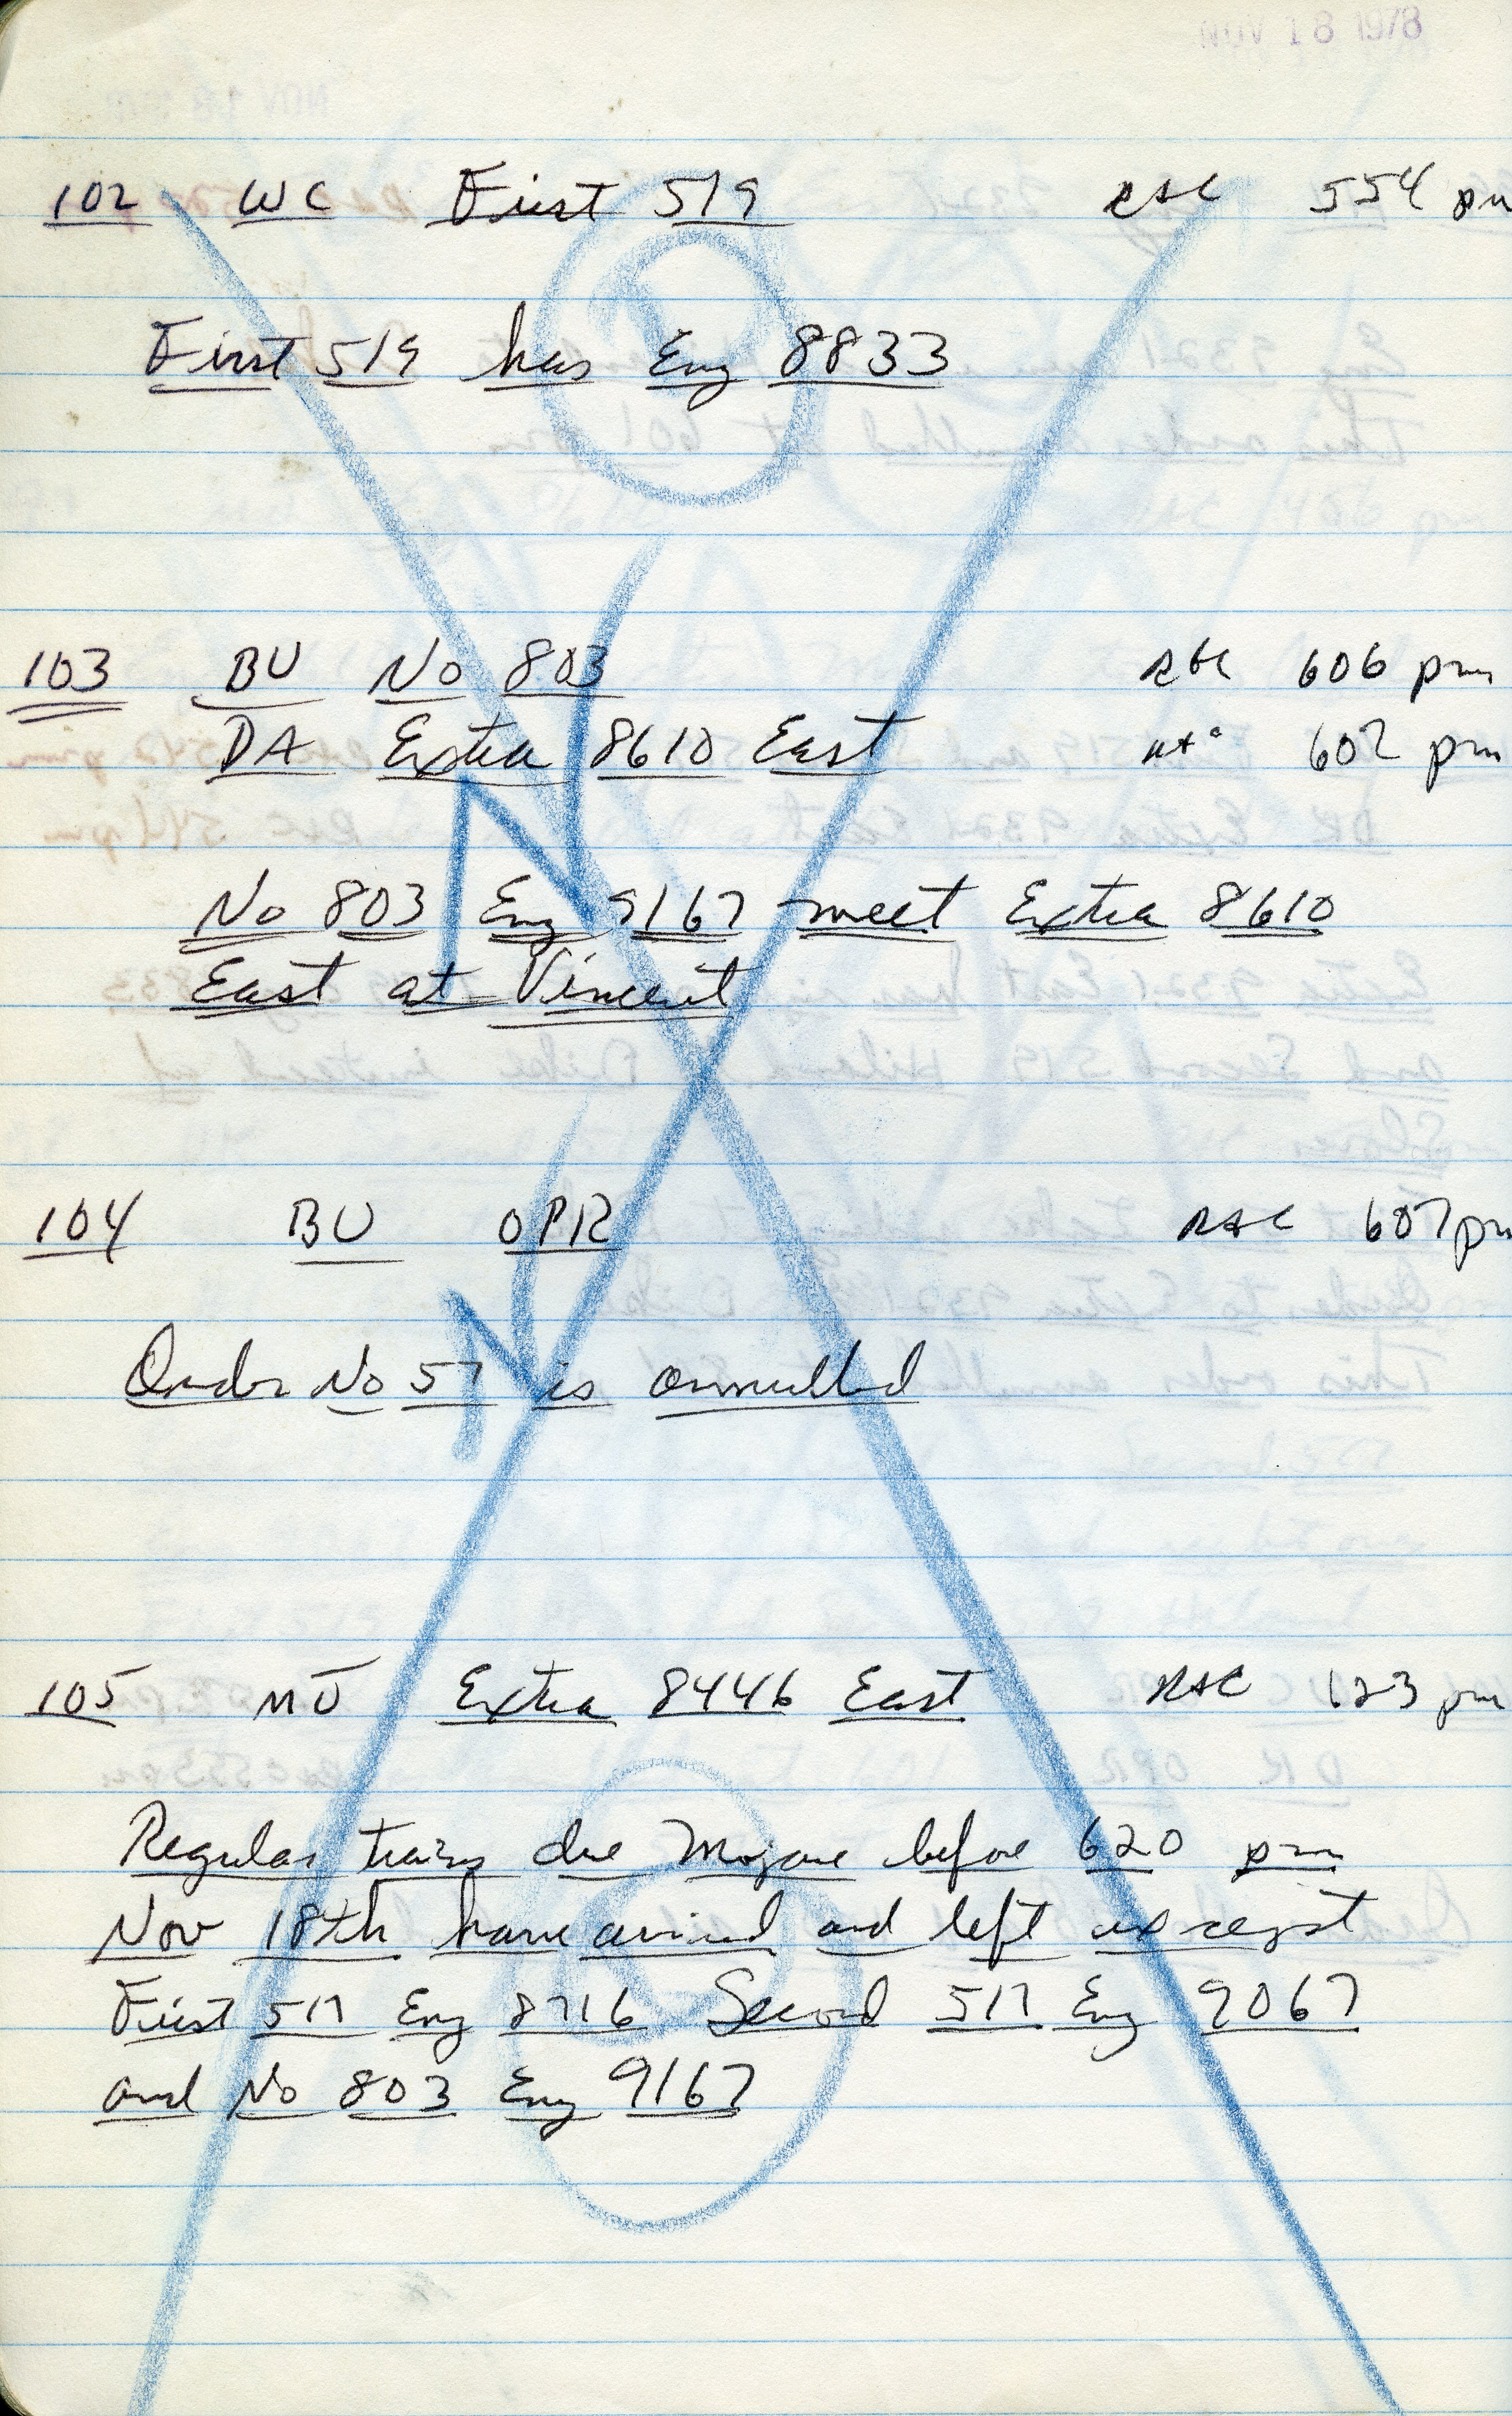 NOV 18 1978
102 WC First 519 RAC 554 pm
First 519 has Eng 8833
103 BU No 803 RAC 606 pm
DA Extra 8610 East 602 pm
No 803 Eng 9167 meet Extra 8610
East at Vincent
104 BU OPR RAC 607 pm
Order No 57 is annulled
105 MJ Extra 8446 East RAC 623 pm
Regular trains due Mojave before 620 pm
Nov 18th have arrived and left except
First 517 Eng 8716 Second 517 Eng 9067
and No 803 Eng 9167